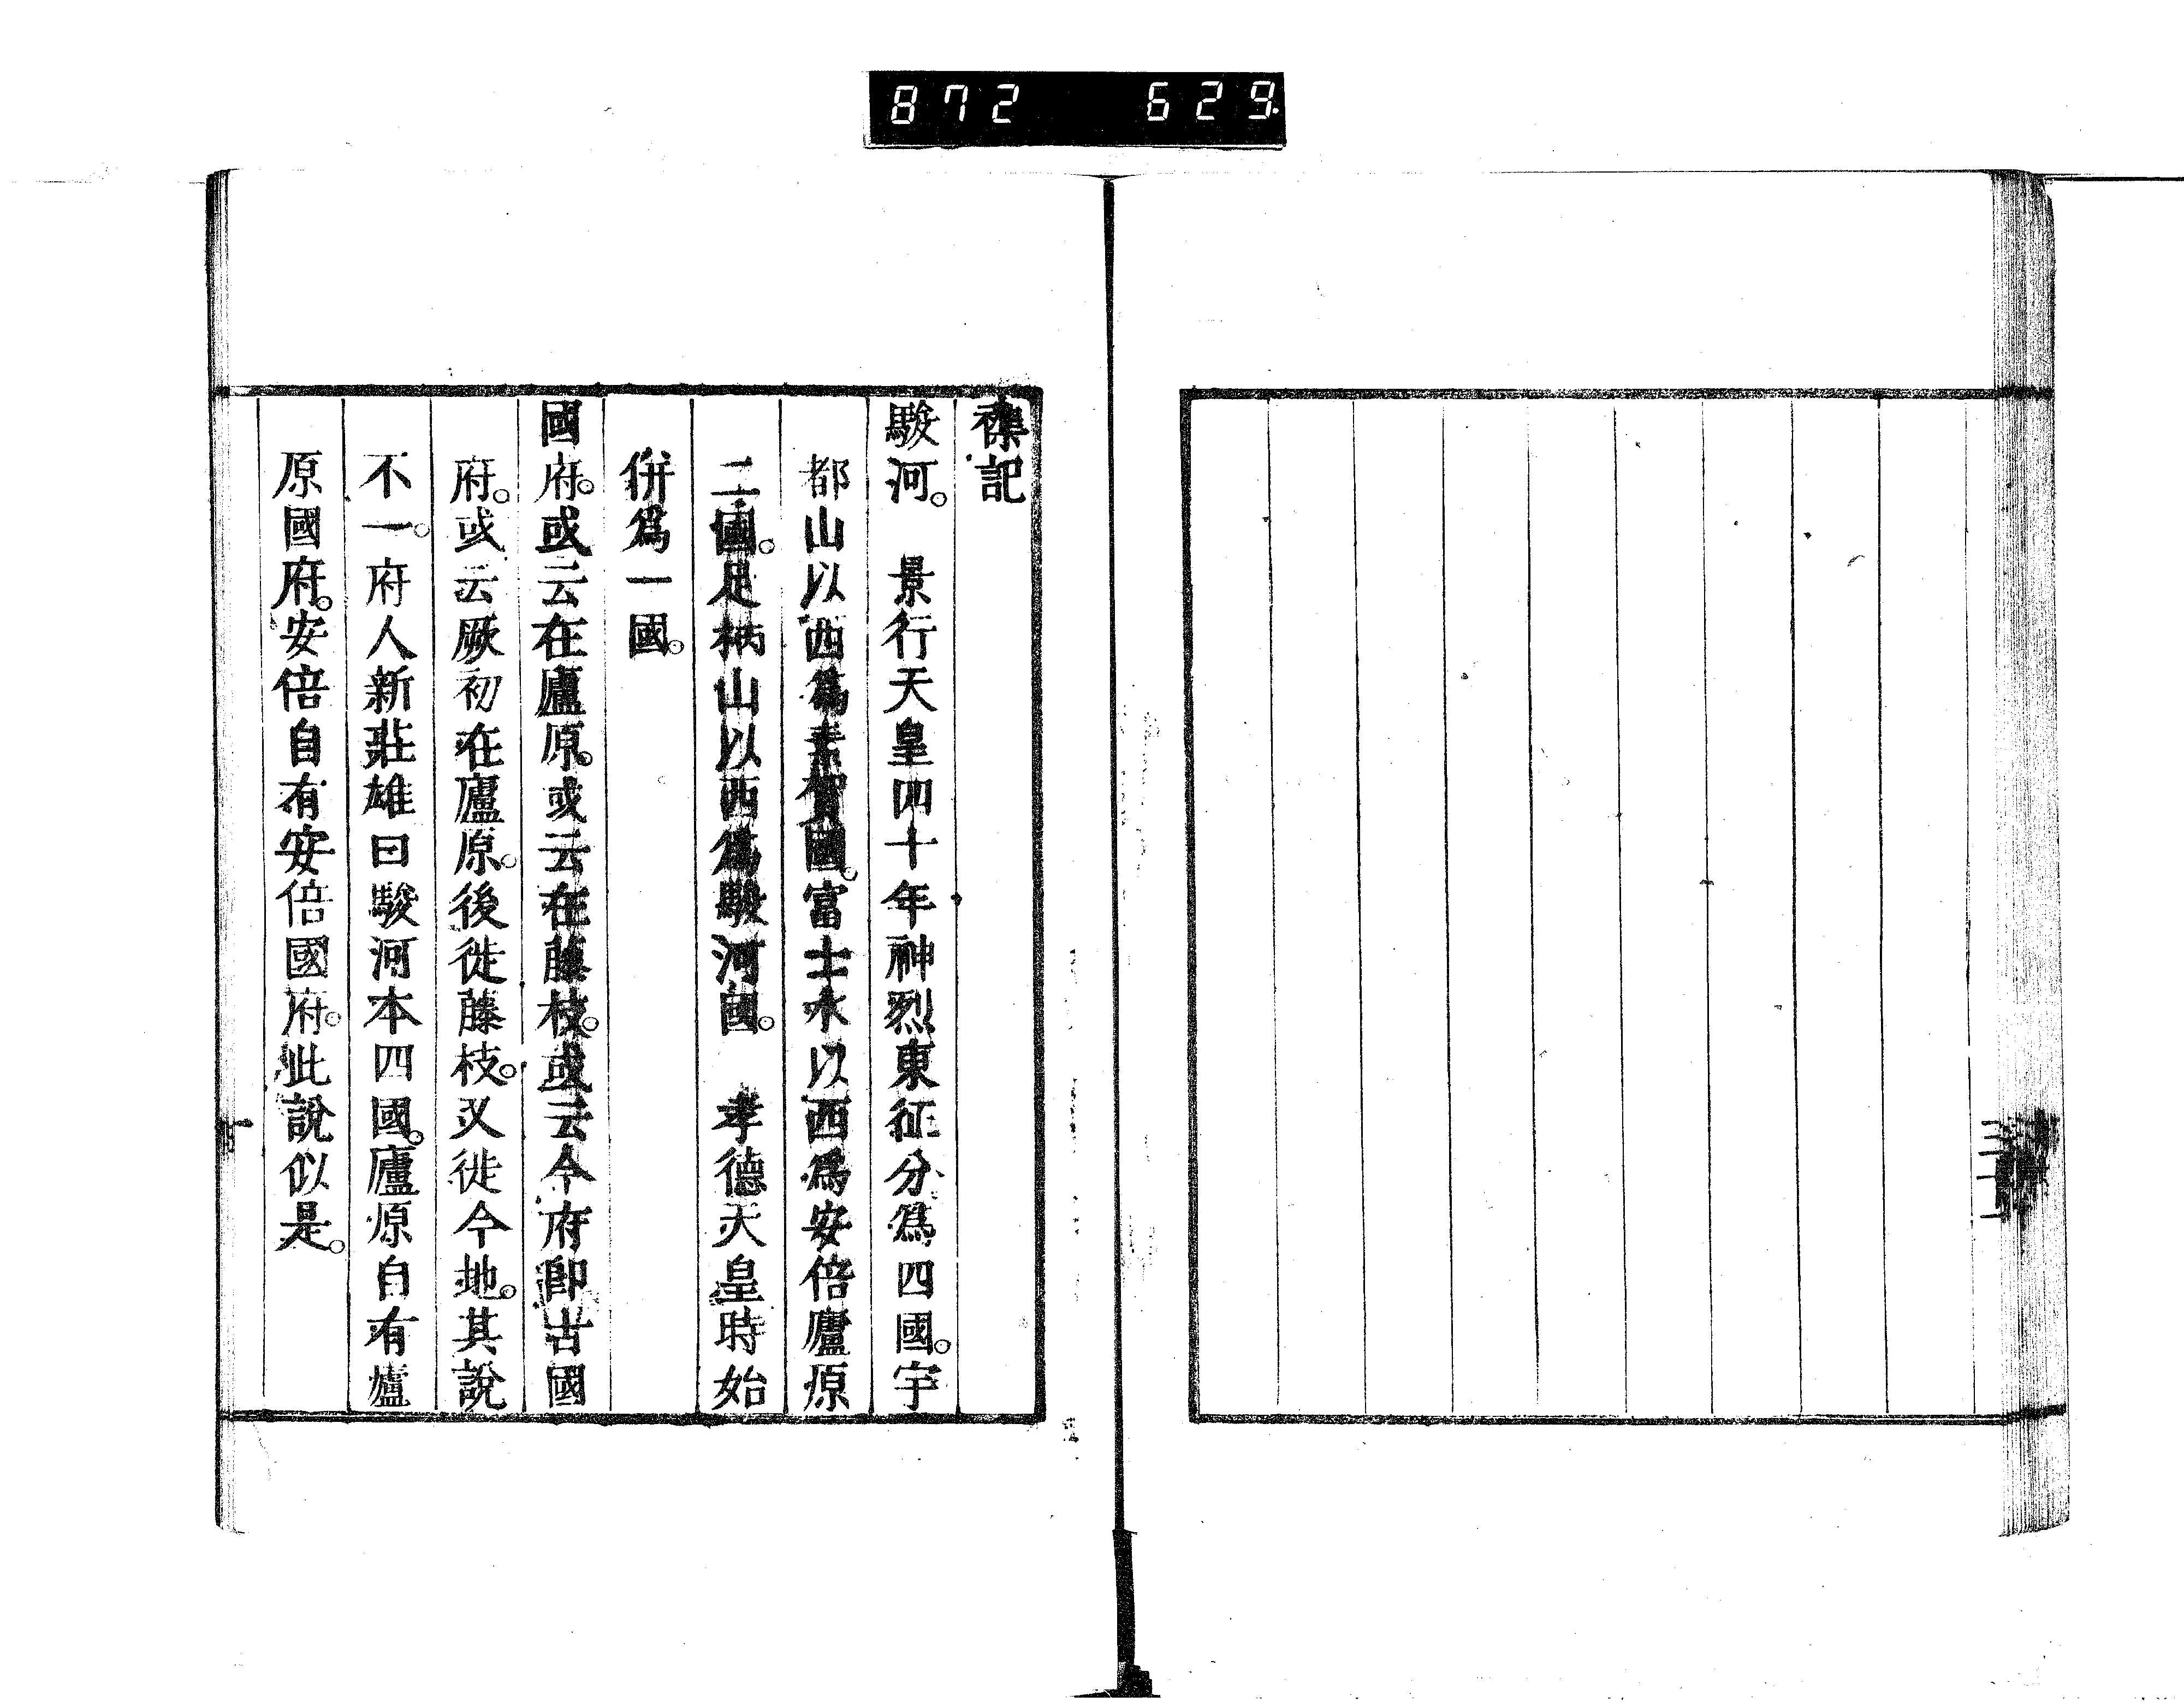 872 629
襍記
駿河。 景行天皇四十年神烈東征分爲四國。宇
都山以西爲素賀國。富士水以西爲安倍廬原
二國。足柄山以西爲駿河國。 孝德天皇時始
併爲一國。
國府。或云在廬原。或云在藤枝。或云今府卽古國
府。或云厥初在廬原。後徙藤枝。又徙今地。其說
不一。府人新莊雄曰駿河本四國。廬原自有廬
原國府。安倍自有安倍國府。此說似是。